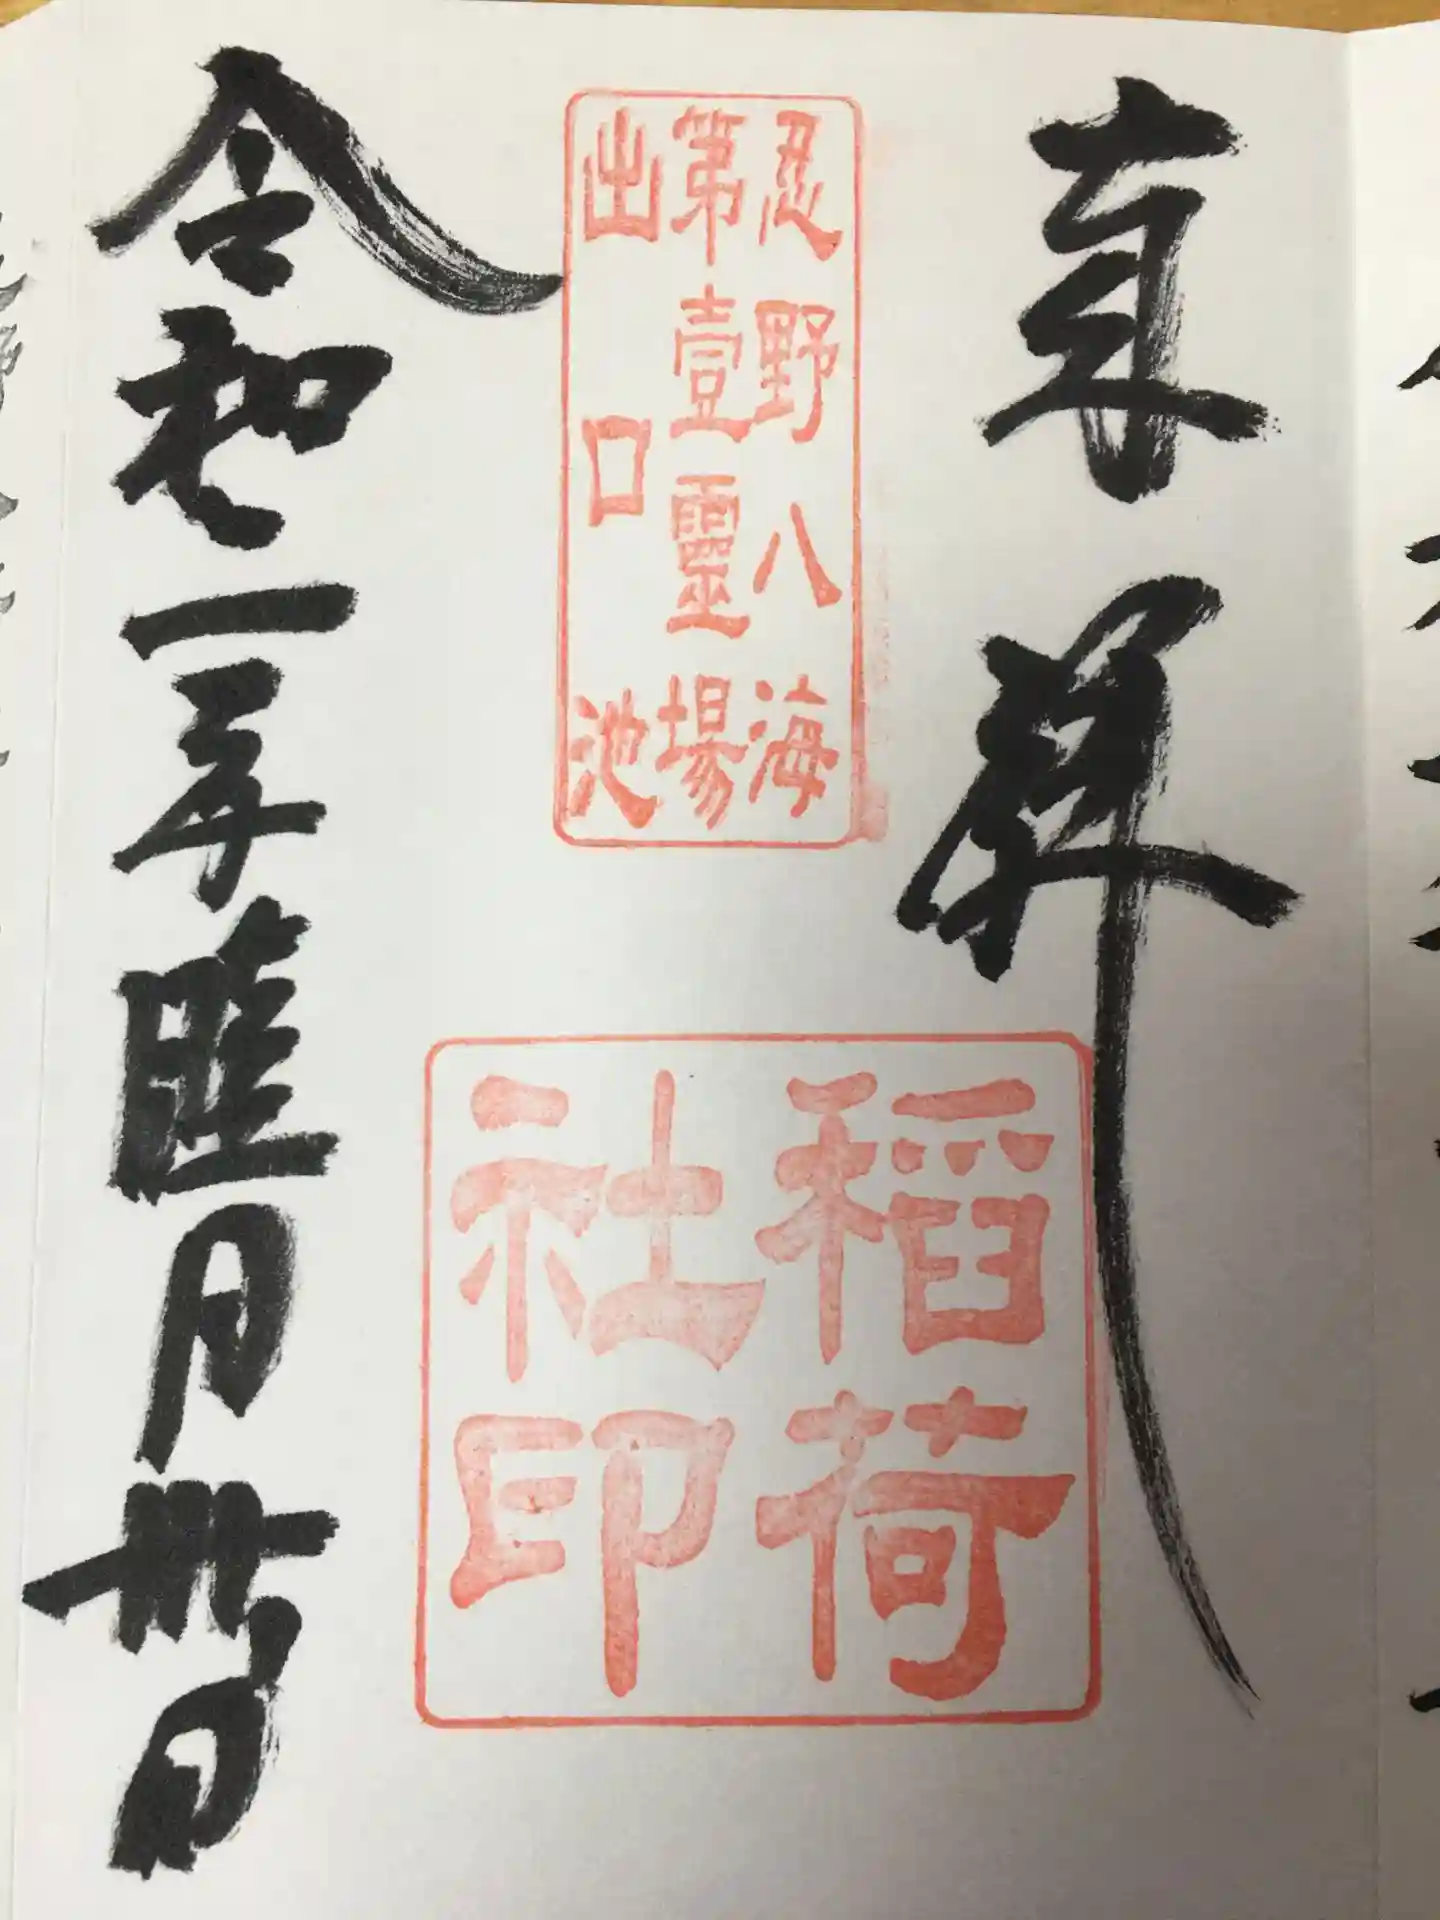 奉拝
忍野八海
第壹靈場
出口池
稻荷
社印
令和 年睦月 日